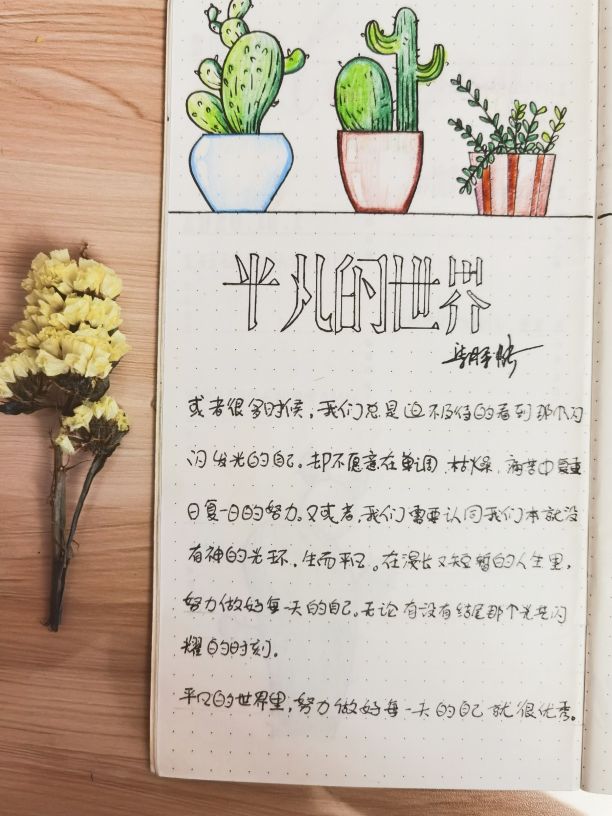 平凡的世界
或者很多时候，我们总是迫不及待的看到那个闪
闪发光的自己。却不愿意在单调、枯燥、痛苦中夏重
日复一日的努力。又或者，我们需要认同我们本就没
有神的光环，生而平凡。在漫长又短暂的人生里，
努力做好每一天的自己。无论有没有结尾那个光芒闪
耀的时刻。
平凡的世界里，努力做好每一天的自己就很优秀。